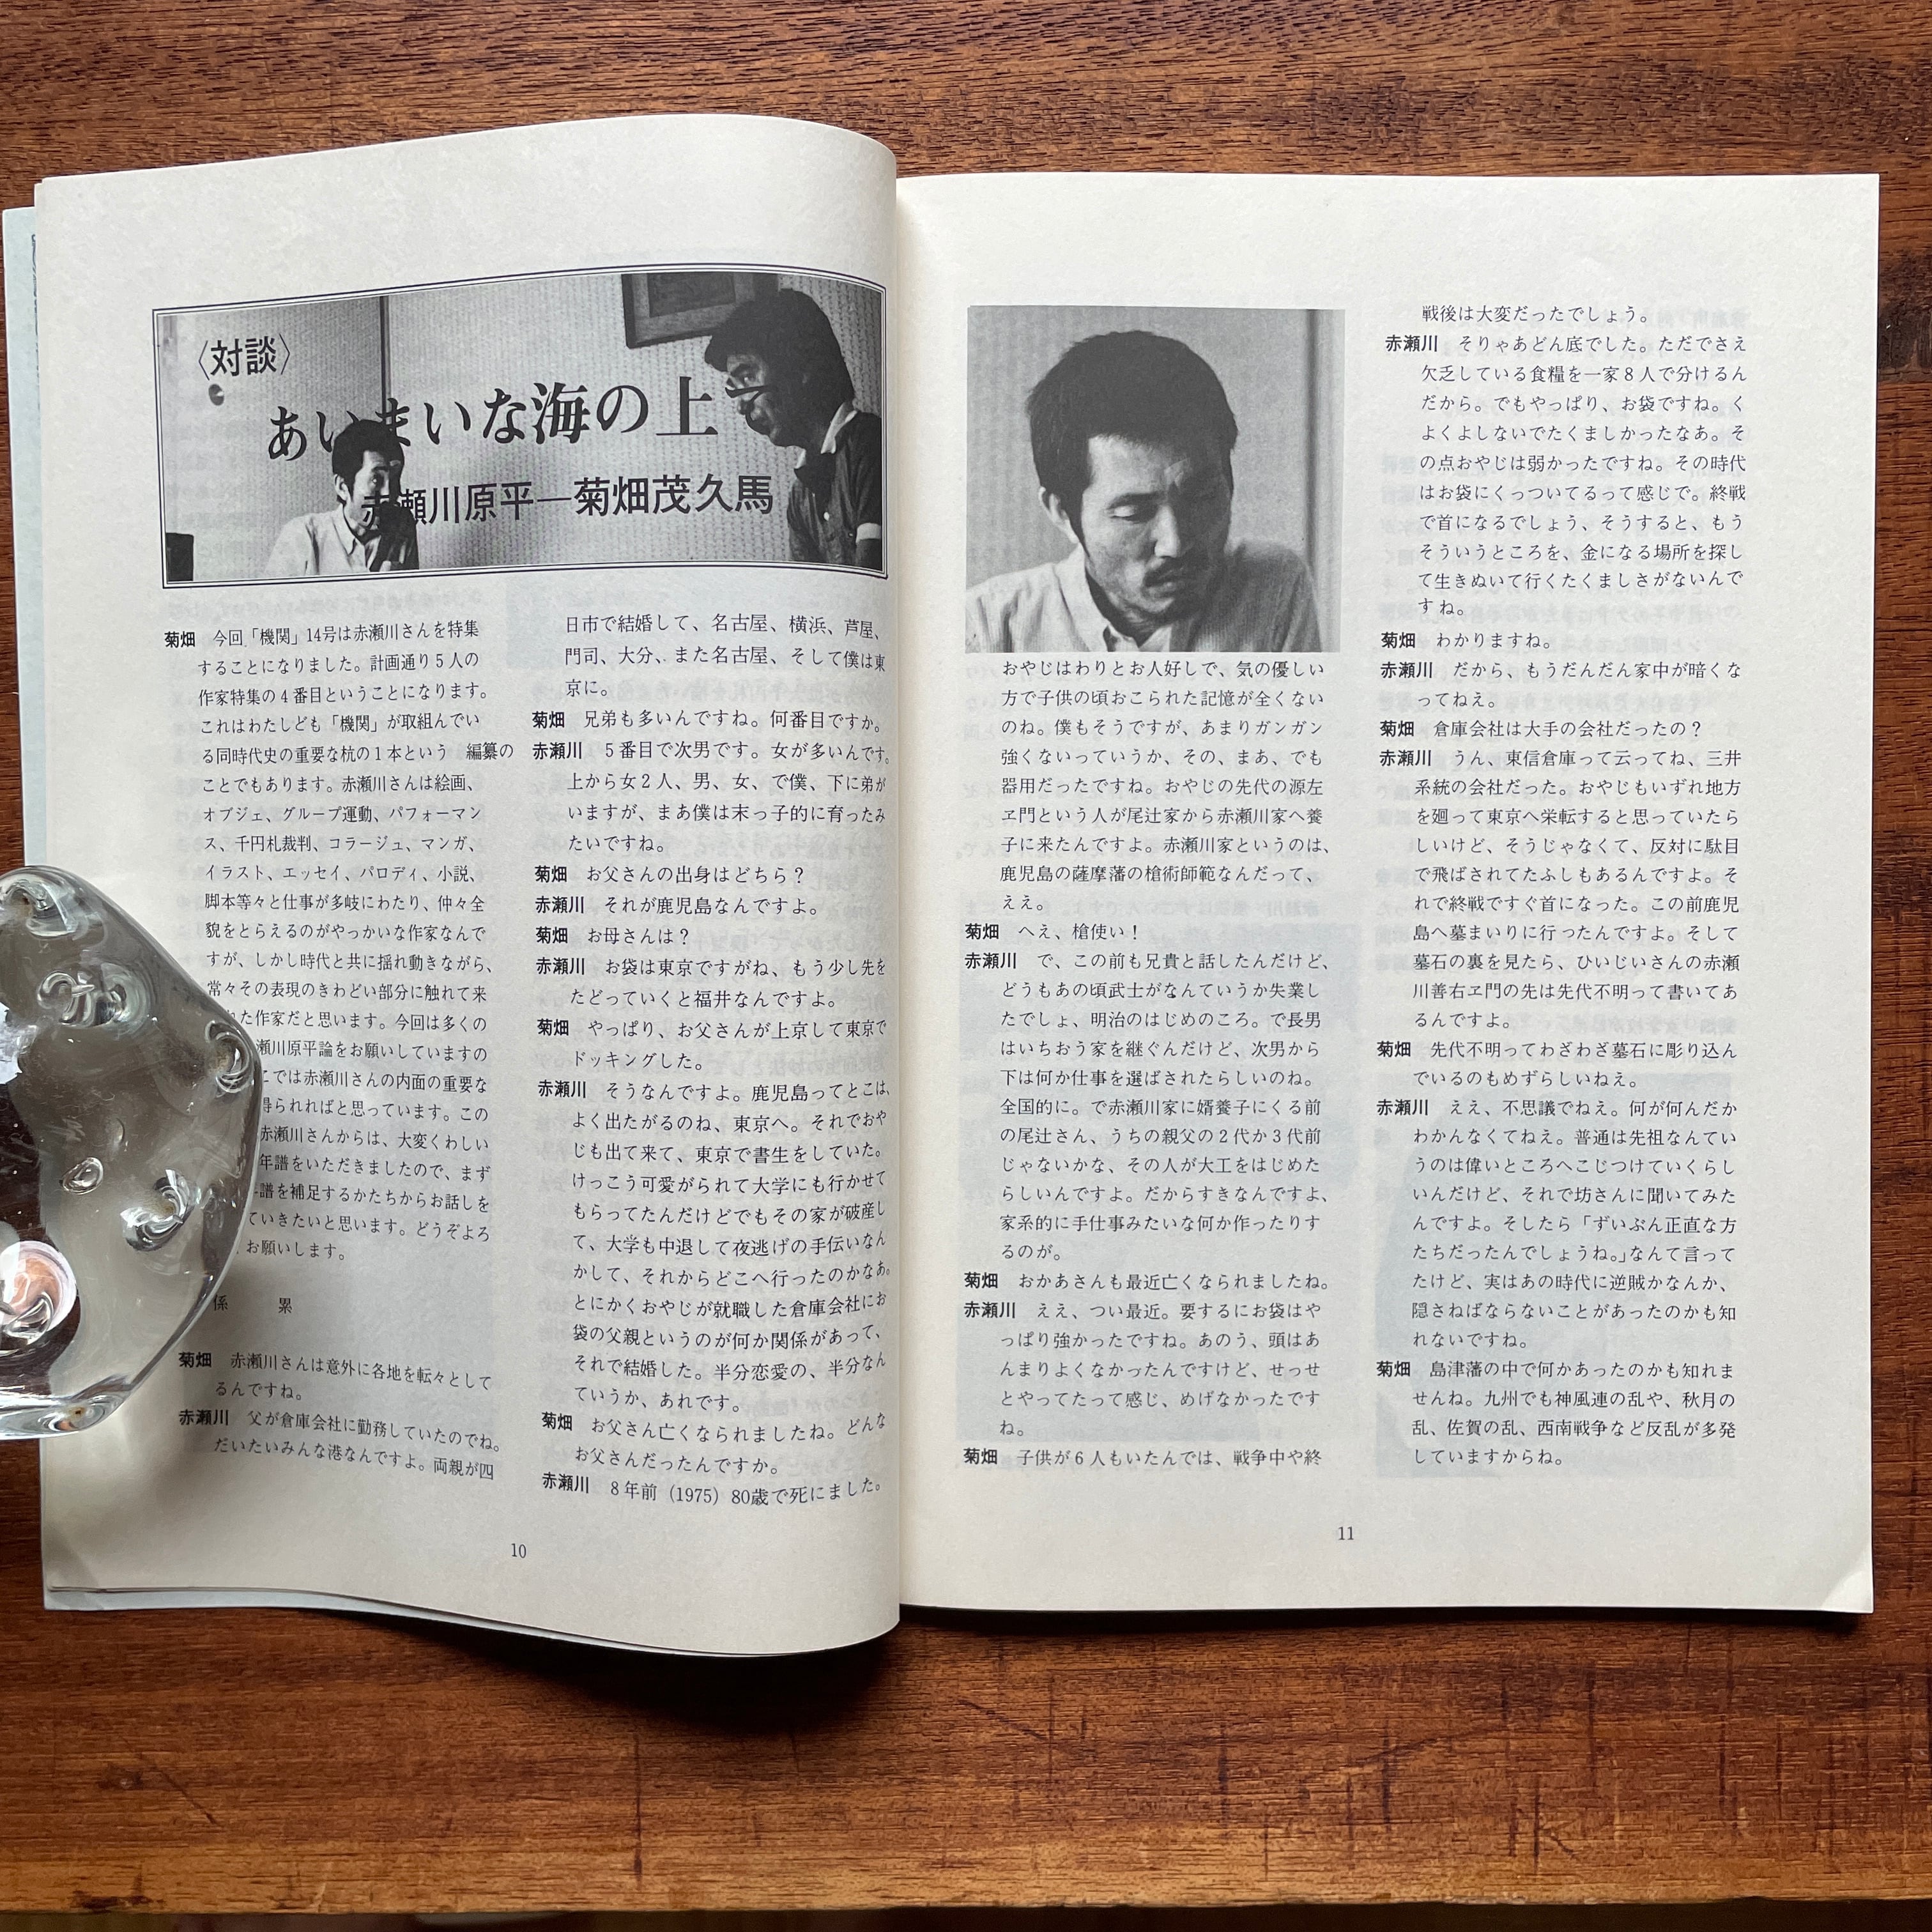 〈対談〉
あいまいな海の上
赤瀬川原平―菊畑茂久馬
菊畑 今回「機関」14号は赤瀬川さんを特集
することになりました。計画通り5人の
作家特集の4番目ということになります。
これはわたしども「機関」が取組んでい
る同時代史の重要な杭の1本という 編纂の
ことでもあります。赤瀬川さんは絵画、
オブジェ、グループ運動、パフォーマン
ス、千円札裁判、コラージュ、マンガ、
イラスト、エッセイ、パロディ、小説、
脚本等々と仕事が多岐にわたり、仲々全
貌をとらえるのがやっかいな作家なんで
すが、しかし時代と共に揺れ動きながら、
常々その表現のきわどい部分に触れて来
れた作家だと思います。今回は多くの
瀬川原平論をお願いしていますの
こでは赤瀬川さんの内面の重要な
得られればと思っています。この
赤瀬川さんからは、大変くわしい
年譜をいただきましたので、まず
譜を補足するかたちからお話しを
ていきたいと思います。どうぞよろ
お願いします。
係 累
菊畑 赤瀬川さんは意外に各地を転々として
るんですね。
赤瀬川 父が倉庫会社に勤務していたのでね。
だいたいみんな港なんですよ。両親が四
日市で結婚して、名古屋、横浜、芦屋、
門司、大分、また名古屋、そして僕は東
京に。
菊畑 兄弟も多いんですね。何番目ですか。
赤瀬川 5番目で次男です。女が多いんです。
上から女2人、男、女、で僕、下に弟が
いますが、まあ僕は末っ子的に育ったみ
たいですね。
菊畑 お父さんの出身はどちら？
赤瀬川 それが鹿児島なんですよ。
菊畑 お母さんは？
赤瀬川 お袋は東京ですがね、もう少し先を
たどっていくと福井なんですよ。
菊畑 やっぱり、お父さんが上京して東京で
ドッキングした。
赤瀬川 そうなんですよ。鹿児島ってとこは、
よく出たがるのね、東京へ。それでおや
じも出て来て、東京で書生をしていた。
けっこう可愛がられて大学にも行かせて
もらってたんだけどでもその家が破産し
て、大学も中退して夜逃げの手伝いなん
かして、それからどこへ行ったのかなあ。
とにかくおやじが就職した倉庫会社にお
袋の父親というのが何か関係があって、
それで結婚した。半分恋愛の、半分なん
ていうか、あれです。
菊畑 お父さん亡くなられましたね。どんな
お父さんだったんですか。
赤瀬川 8年前（1975）80歳で死にました。
10
おやじはわりとお人好しで、気の優しい
方で子供の頃おこられた記憶が全くない
のね。僕もそうですが、あまりガンガン
強くないっていうか、その、まあ、でも
器用だったですね。おやじの先代の源左
ヱ門という人が尾辻家から赤瀬川家へ養
子に来たんですよ。赤瀬川家というのは、
鹿児島の薩摩藩の槍術師範なんだって、
ええ。
菊畑 へえ、槍使い！
赤瀬川 で、この前も兄貴と話したんだけど、
どうもあの頃武士がなんていうか失業し
たでしょ、明治のはじめのころ。で長男
はいちおう家を継ぐんだけど、次男から
下は何か仕事を選ばされたらしいのね。
全国的に。で赤瀬川家に婿養子にくる前
の尾辻さん、うちの親父の2代か3代前
じゃないかな、その人が大工をはじめた
らしいんですよ。だからすきなんですよ、
家系的に手仕事みたいな何か作ったりす
るのが。
菊畑 おかあさんも最近亡くなられましたね。
赤瀬川 ええ、つい最近。要するにお袋はや
っぱり強かったですね。あのう、頭はあ
んまりよくなかったんですけど、せっせ
とやってたって感じ、めげなかったです
ね。
菊畑 子供が6人もいたんでは、戦争中や終
戦後は大変だったでしょう。
赤瀬川 そりゃあどん底でした。ただでさえ
欠乏している食糧を一家8人で分けるん
だから。でもやっぱり、お袋ですね。く
よくよしないでたくましかったなあ。そ
の点おやじは弱かったですね。その時代
はお袋にくっついてるって感じで。終戦
で首になるでしょう、そうすると、もう
そういうところを、金になる場所を探し
て生きぬいて行くたくましさがないんで
すね。
菊畑 わかりますね。
赤瀬川 だから、もうだんだん家中が暗くな
ってねえ。
菊畑 倉庫会社は大手の会社だったの？
赤瀬川 うん、東信倉庫って云ってね、三井
系統の会社だった。おやじもいずれ地方
を廻って東京へ栄転すると思っていたら
しいけど、そうじゃなくて、反対に駄目
で飛ばされてたふしもあるんですよ。そ
れで終戦ですぐ首になった。この前鹿児
島へ墓まいりに行ったんですよ。そして
墓石の裏を見たら、ひいじいさんの赤瀬
川善右ヱ門の先は先代不明って書いてあ
るんですよ。
菊畑 先代不明ってわざわざ墓石に彫り込ん
でいるのもめずらしいねえ。
赤瀬川 ええ、不思議でねえ。何が何んだか
わかんなくてねえ。普通は先祖なんてい
うのは偉いところへこじつけていくらし
いんだけど、それで坊さんに聞いてみた
んですよ。そしたら「ずいぶん正直な方
たちだったんでしょうね。」なんて言って
たけど、実はあの時代に逆賊かなんか、
隠さねばならないことがあったのかも知
れないですね。
菊畑 島津藩の中で何かあったのかも知れま
せんね。九州でも神風連の乱や、秋月の
乱、佐賀の乱、西南戦争など反乱が多発
していますからね。
11